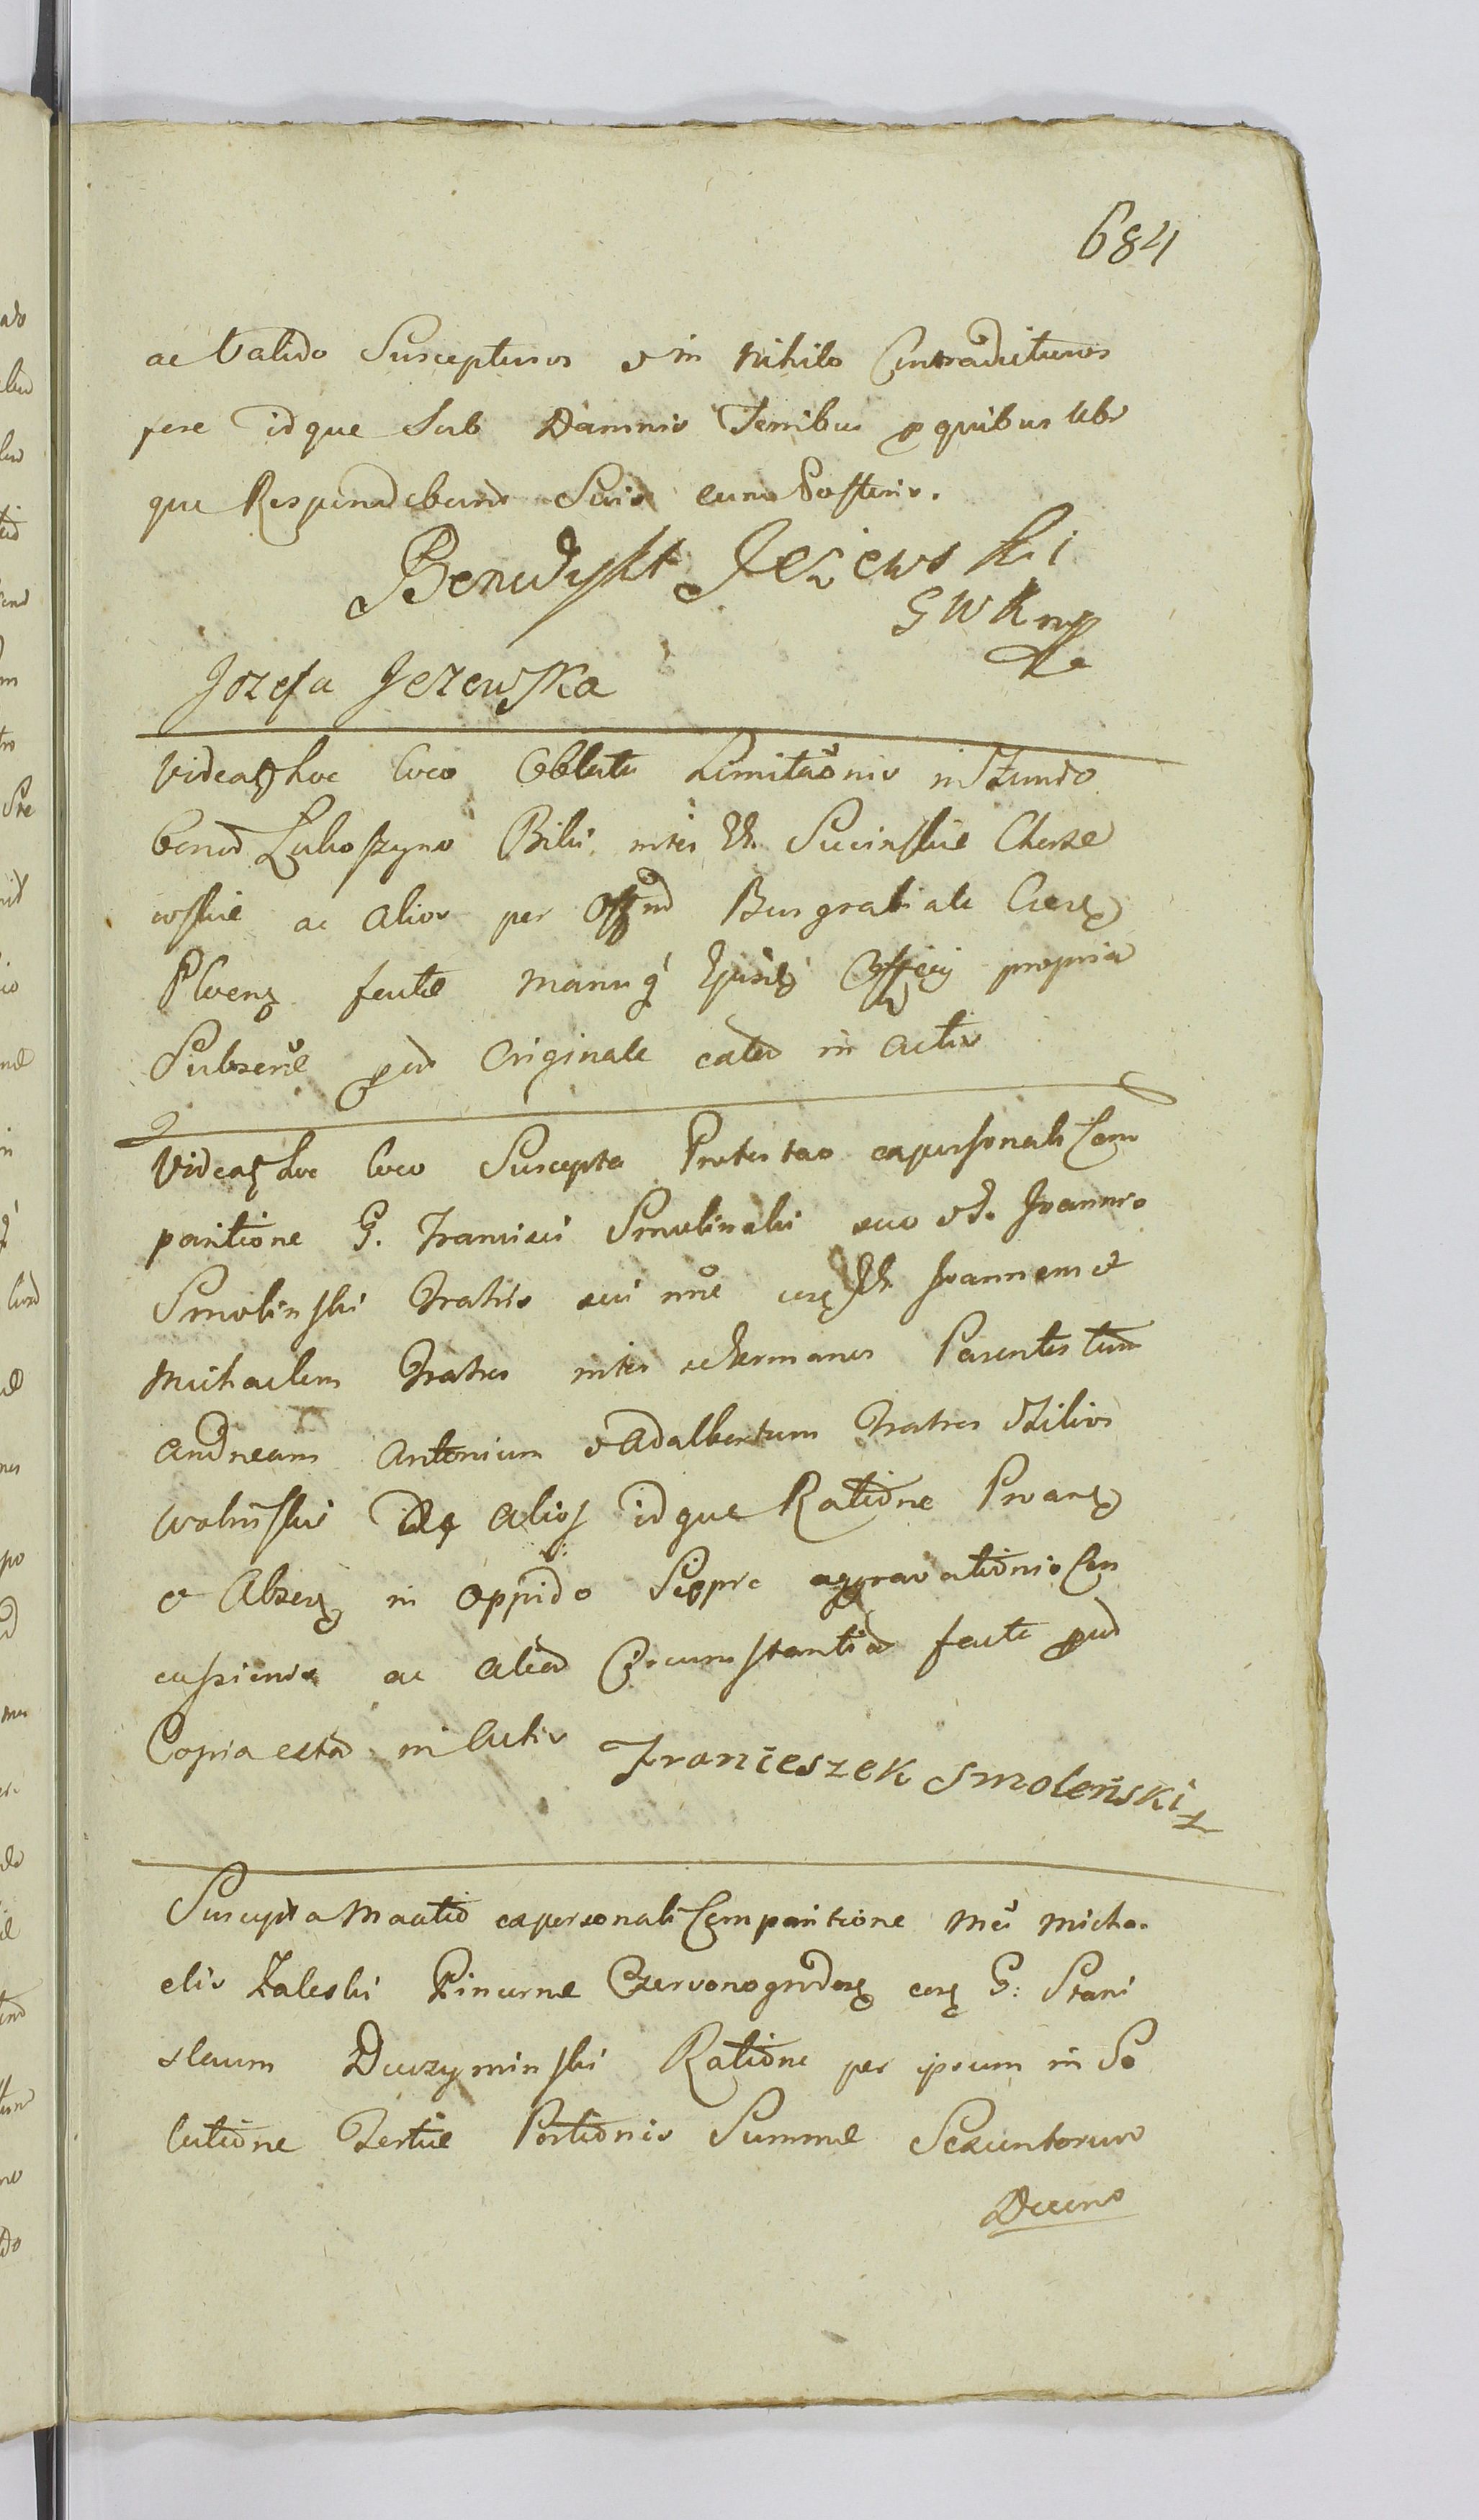 684
ac Valido Suscepturos et in Nihilo Contradicturos
fore idque Sub Damnis Terribus pro quibus ubi
que Respondebunt Suis cum Posteris.
Benedykt Jeżewski
GWKmp
Jozefa Jezewska
Videatur hoc loco Oblata Limitaõnis in Fundo
bonor Lukoszyno Bilii inter Sucinskie Charze
wskie ac alios per Offnd Burgrabiale Cacr
Plocens factae manuq Ejusd Officij propria
Subscrae prod Originale eatad in actis
Videatur hoc loco Suscepta Protestao ex personali Com
paritione G. Francisci Smolinski suo et G. Joannis
Smolinski Fratris sui nne cora Joannem et
Michaelem Fratres inter se Germanos Parentes tum
Andream Antonium et Adalbertum Fratres Filios
Wolinskie alios idque Ratione Pvarum
et Absens in oppido Sieprc aggravationis Con
cussionis ac aliad Circumstantiad facta prod
Copia extad in Actis Francieszek Smoleński
Suscepta Maatio ex personali Comparitione Mci Micha-
elis Zaleski Pincernae Czerwonogrodens cora G: Stani
slaum Duczyminski Ratione per ipsum in So
lutione Tertiae Portionis Summae Sexcentorum
Decem